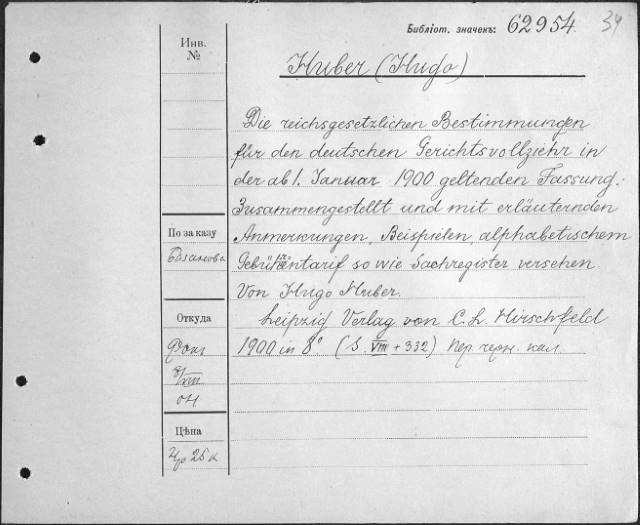 Библіот. значекъ: 62954. 34
Инв.
№
Huber (Hugo)
Die reichsgesetzlichen Bestimmungen
für den deutschen Gerichtsvollziehr in
der ab 1. Januar 1900 geltenden Fassung.
Zusammengestellt und mit erläuternden
Anmerkungen, Beispielen, alphabetischem
Gebührentarif so wie Sachregister versehen.
Von Hugo Huber.
Leipzig Verlag von C. L. Hirschfeld
1900 in 8° (S. VIII + 332) пер. черн. кал.
По заказу
Базанова
Откуда
8/VIII
04.
Цѣна
25 к